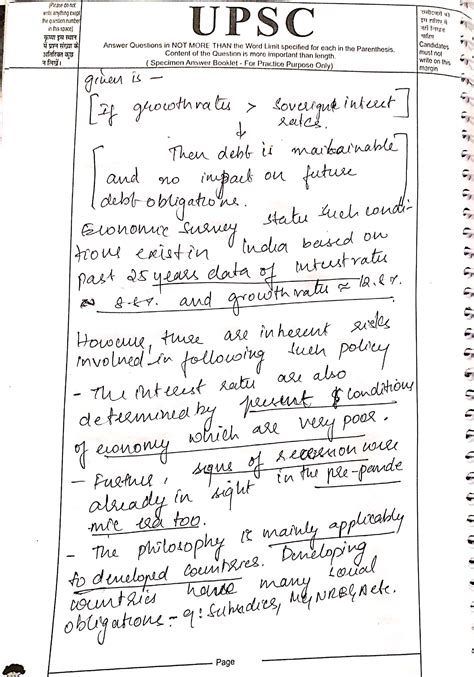 (Please do not write anything except the question number in this space)
कृपया इस स्थान में प्रश्न संख्या के अतिरिक्त कुछ न लिखें
UPSC
Answer Questions in NOT MORE THAN the Word Limit specified for each in the Parenthesis.
Content of the Question is more important than length.
( Specimen Answer Booklet - For Practice Purpose Only)
उम्मीदवारों को इस हाशिये में नहीं लिखना चाहिए
Candidates must not write on this margin
given is -
[If growthrates > Sovereign interest
rates.
↓
[Then debt is maintainable]
and no impact on future
debt obligations.
Economic Survey states such condi-
tions exist in India based on
past 25 years data of interest rates
≈ 8.8%. and growth rates ≈ 12.8%.
However, there are inherent risks
involved in following such policy
- The interest rates are also
determined by present conditions
of economy which are very poor.
- Further, signs of recession were
already in sight in the pre-pande
mic era too.
- The philosophy is mainly applicably
to developed countries. Developing
countries have many social
obligations - eg: Subsidies, MgNREGA etc.
Page